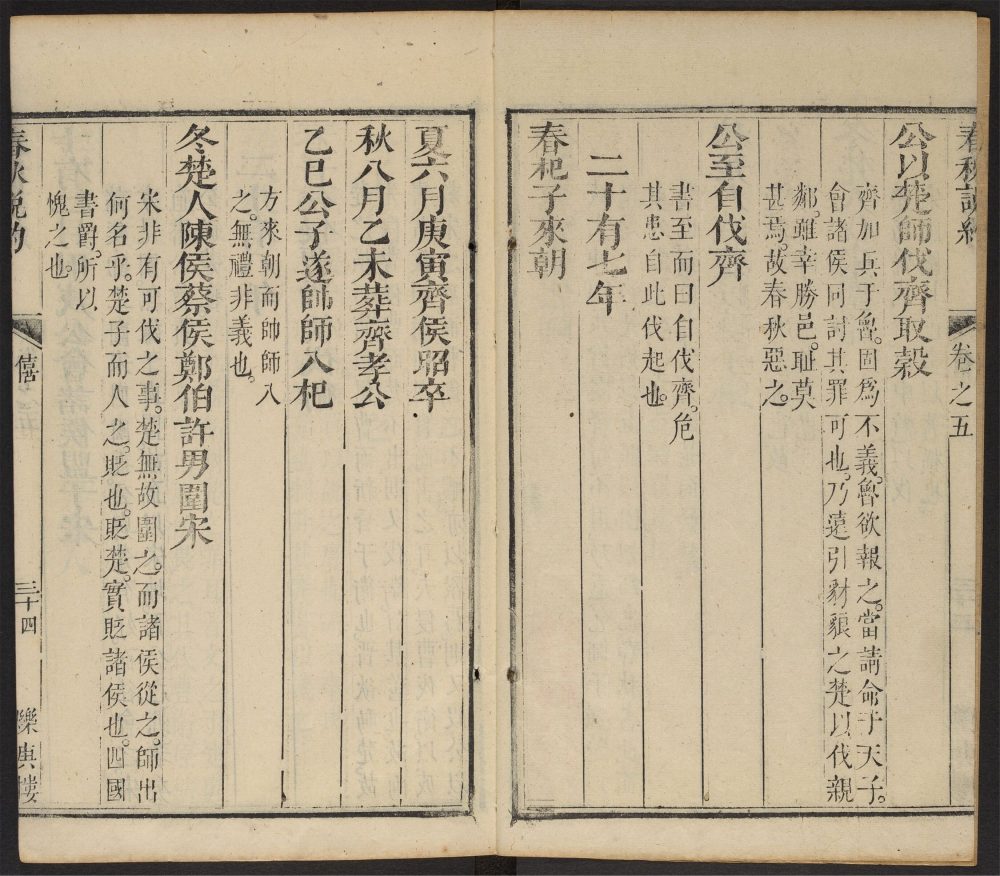 春秋說約
卷之五
公以楚師伐齊取穀
齊加兵于魯。固爲不義。魯欲報之。當請命于天子。
會諸侯同討其罪可也。乃遠引豺狼之楚以伐親
鄰。雖幸勝邑。耻莫
甚焉。故春秋惡之。
公至自伐齊
書至而曰自伐齊。危
其患自此伐起也。
二十有七年
春杞子來朝
夏六月庚寅齊侯昭卒
秋八月乙未葬齊孝公
乙巳公子遂帥師入杞
方來朝而帥師入
之。無禮非義也。
冬楚人陳侯蔡侯鄭伯許男圍宋
宋非有可伐之事。楚無故圍之。而諸侯從之。師出
何名乎。楚子而人之。貶也。貶楚。實貶諸侯也。四國
書爵。所以
愧之也。
春秋說約
僖
三十四
樓